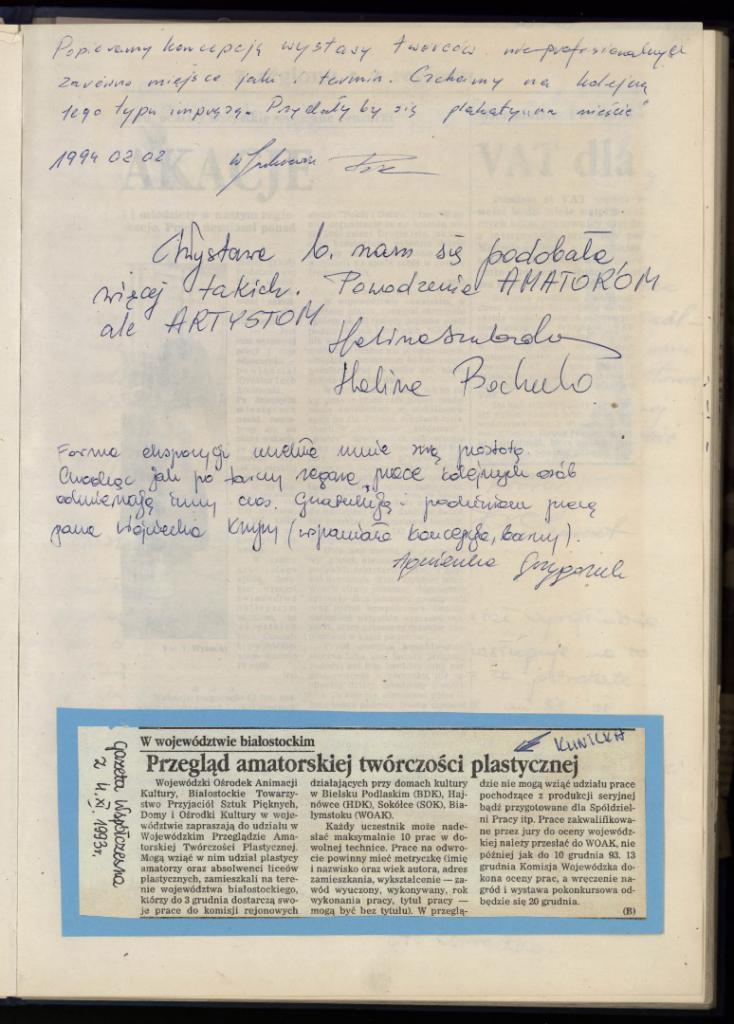 Popieramy koncepcją wystawy twórców nieprofesjonalnych
zarówno miejsce jak i termin. Czekamy na kolejną
tego typu imprezą. Przydały by się plakaty na mieście"
1994 02 02
Wystawa b. nam się podobała,
więcej takich. Powodzenia AMATOROM
ale ARTYSTOM
Halina
Halina
Forma ekspozycji urzekła mnie swą prostotą.
Chodząc jak po tarczy zegara, prace kolejnych osób
odmierzają inny czas. Gratuluję i podziwiam pracę
pana Wojciecha (wspaniała koncepcja, barwy).
Agnieszka
gazeta Współczesna
z 4.XI.1993r.
KUNICKA
W województwie białostockim
Przegląd amatorskiej twórczości plastycznej
Wojewódzki Ośrodek Animacji
Kultury, Białostockie Towarzy-
stwo Przyjaciół Sztuk Pięknych,
Domy i Ośrodki Kultury w woje-
wództwie zapraszają do udziału w
Wojewódzkim Przeglądzie Ama-
torskiej Twórczości Plastycznej.
Mogą wziąć w nim udział plastycy
amatorzy oraz absolwenci liceów
plastycznych, zamieszkali na tere-
nie województwa białostockiego,
którzy do 3 grudnia dostarczą swo-
je prace do komisji rejonowych
działających przy domach kultury
w Bielsku Podlaskim (BDK), Haj-
nówce (HDK), Sokółce (SOK), Bia-
łymstoku (WOAK).
Każdy uczestnik może nade-
słać maksymalnie 10 prac w do-
wolnej technice. Prace na odwro-
cie powinny mieć metryczkę (imię
i nazwisko oraz wiek autora, adres
zamieszkania, wykształcenie — za-
wód wyuczony, wykonywany, rok
wykonania pracy, tytuł pracy —
mogą być bez tytułu). W przeglą-
dzie nie mogą wziąć udziału prace
pochodzące z produkcji seryjnej
bądź przygotowane dla Spółdziel-
ni Pracy itp. Prace zakwalifikowa-
ne przez jury do oceny wojewódz-
kiej należy przesłać do WOAK, nie
później jak do 10 grudnia 93. 13
grudnia Komisja Wojewódzka do-
kona oceny prac, a wręczenie na-
gród i wystawa pokonkursowa od-
będzie się 20 grudnia.
(B)